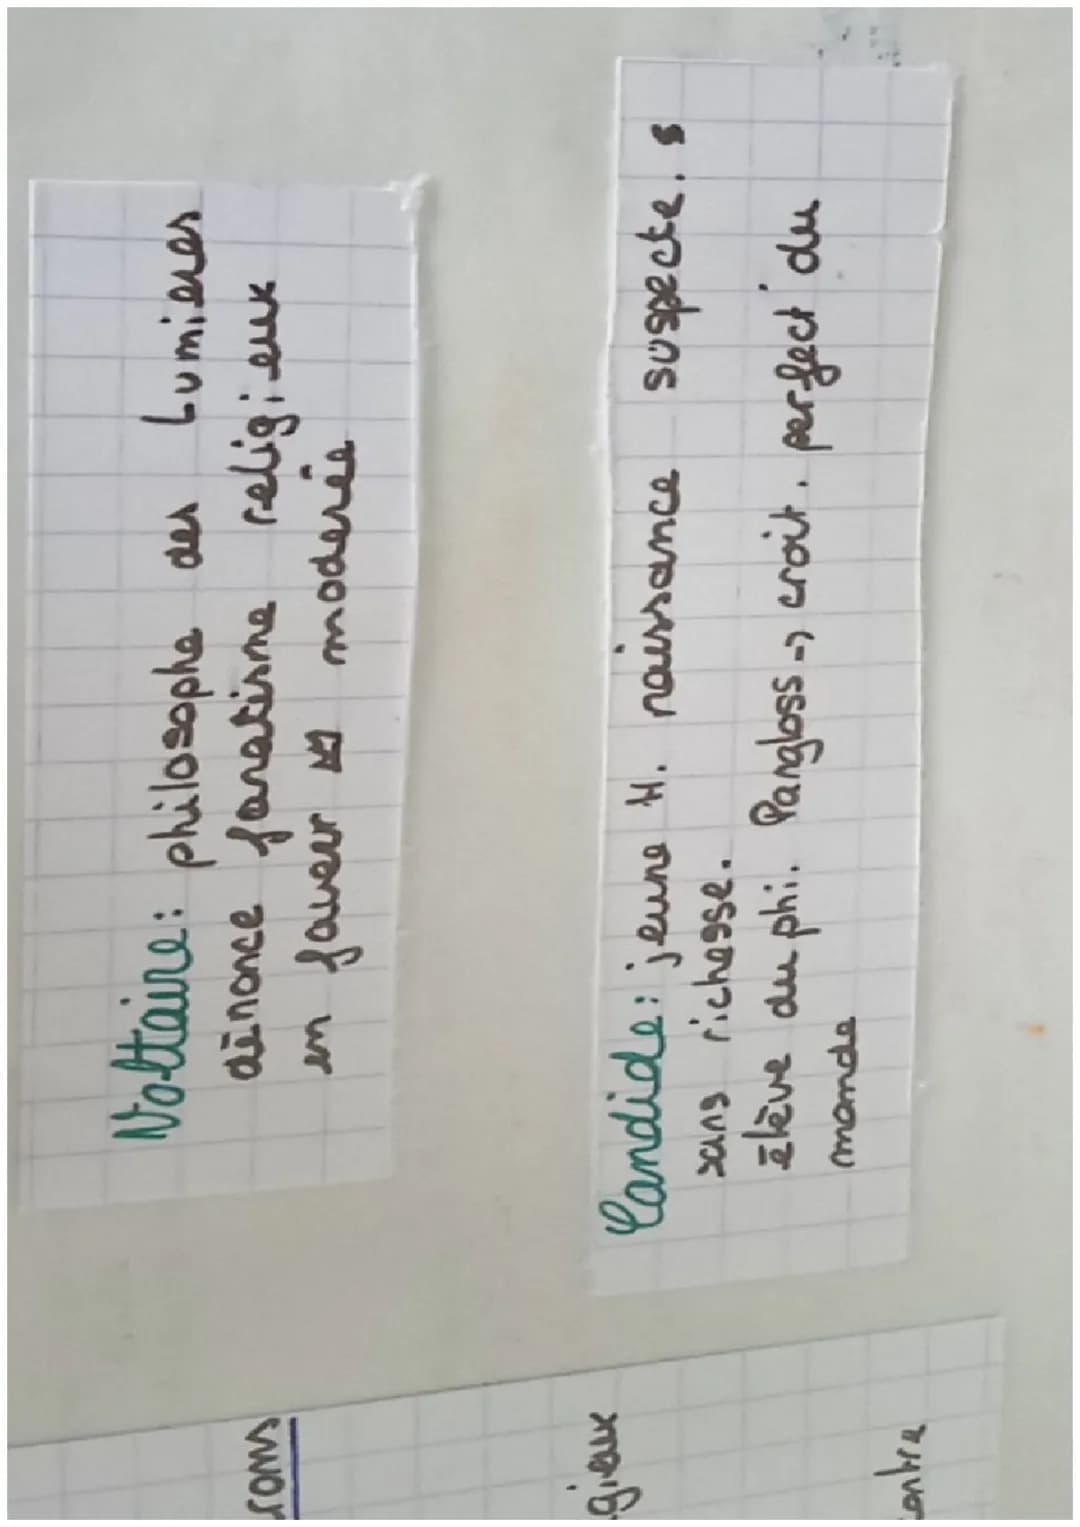 Voltaire : philosophe des Lumières
dénonce fanatisme religieux
en faveur modérée
Candide : jeune H. naissance suspecte. s
sans richesse.
élève du phi. Pangloss => croit. perfect° du
monde
roms
gieux
contre